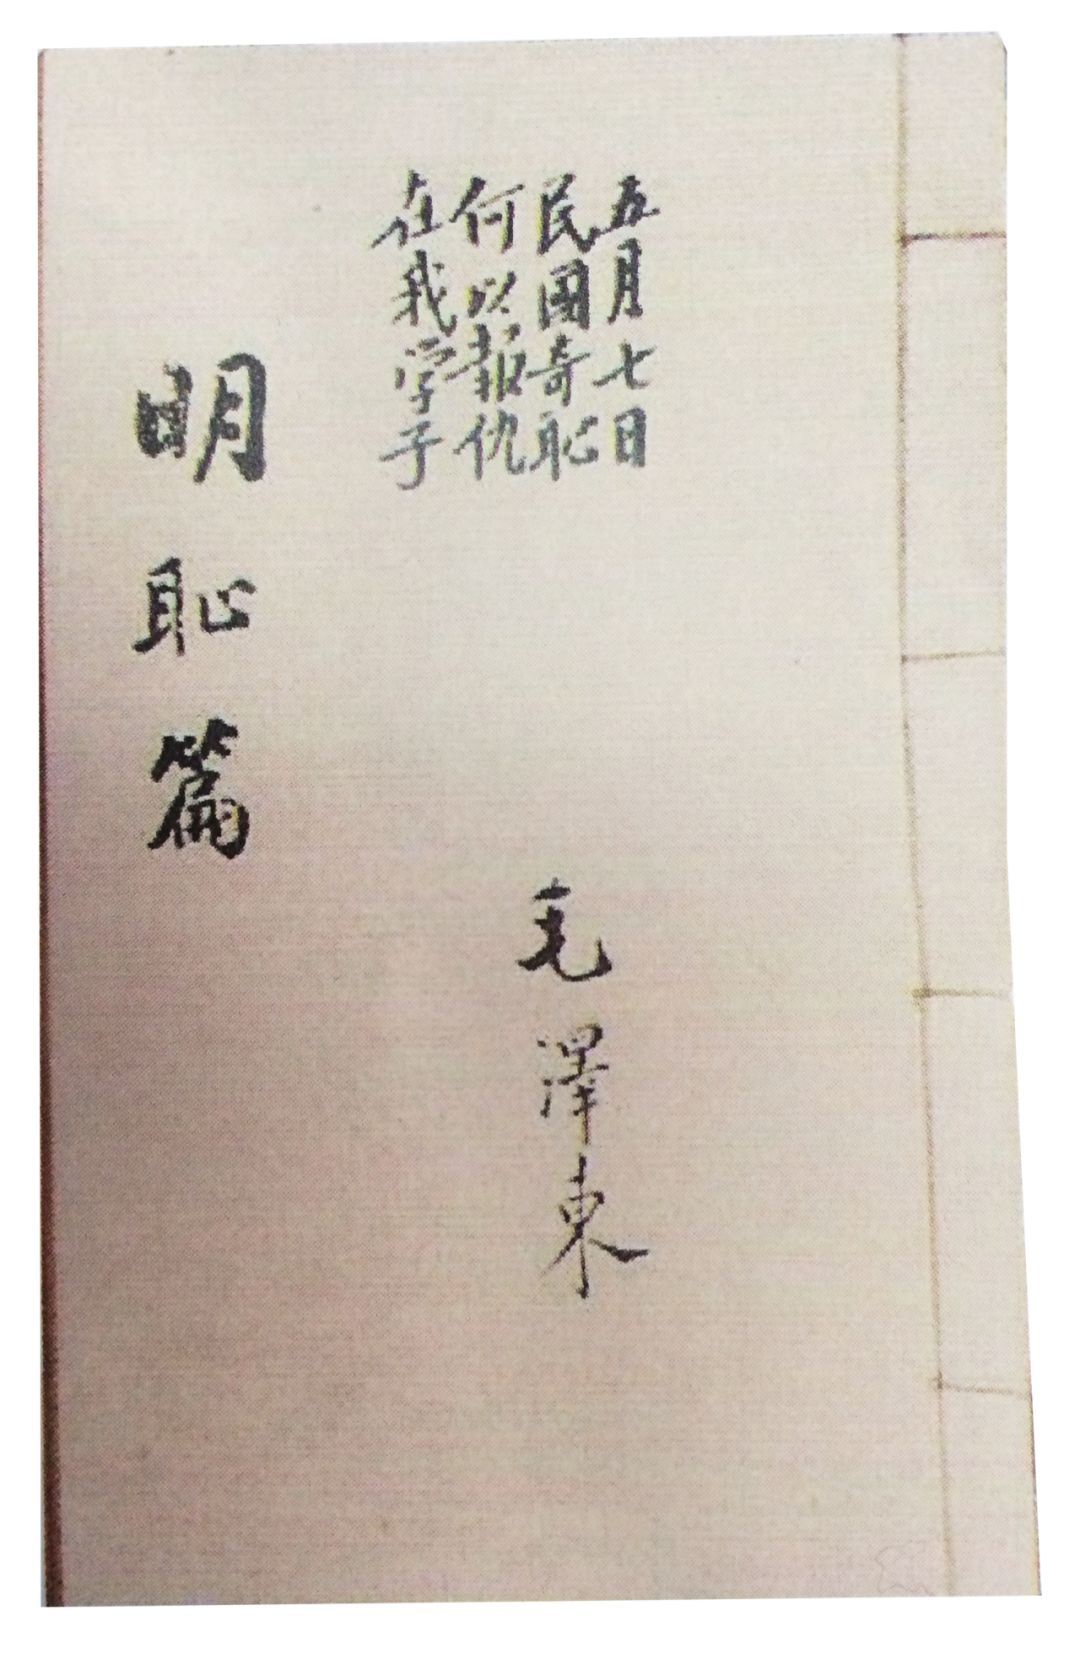 五月七日
民國奇恥
何以報仇
在我学子
毛澤東
明恥篇